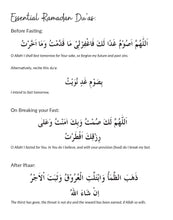 Essential Ramadan Du'as:
Before Fasting:
اَللّٰهُمَّ اَصُوْمُ غَدًا لَّكَ فَاغْفِرْلِيْ مَا قَدَّمْتُ وَمَا اَخَّرْتُ
O Allah! I shall fast tomorrow for Your sake, so forgive my future and past sins.
Alternatively, recite this du'a:
بِصَوْمِ غَدٍ نَّوَيْتُ
I intend to fast tomorrow.
On Breaking your Fast:
اَللّٰهُمَّ لَكَ صُمْتُ وَبِكَ اٰمَنْتُ وَعَلٰى
رِزْقِكَ اَفْطَرْتُ
O Allah! I fasted for You. In You do I believe, and with your provision (food) do I break my fast.
After Iftaar:
ذَهَبَ الظَّمَأُ وَابْتَلَّتِ الْعُرُوْقُ وَثَبَتَ الْاَجْرُ
اِنْ شَاءَ اللّٰهُ
The thirst has gone, the throat is not dry and the reward has been earned, if Allah so wills.